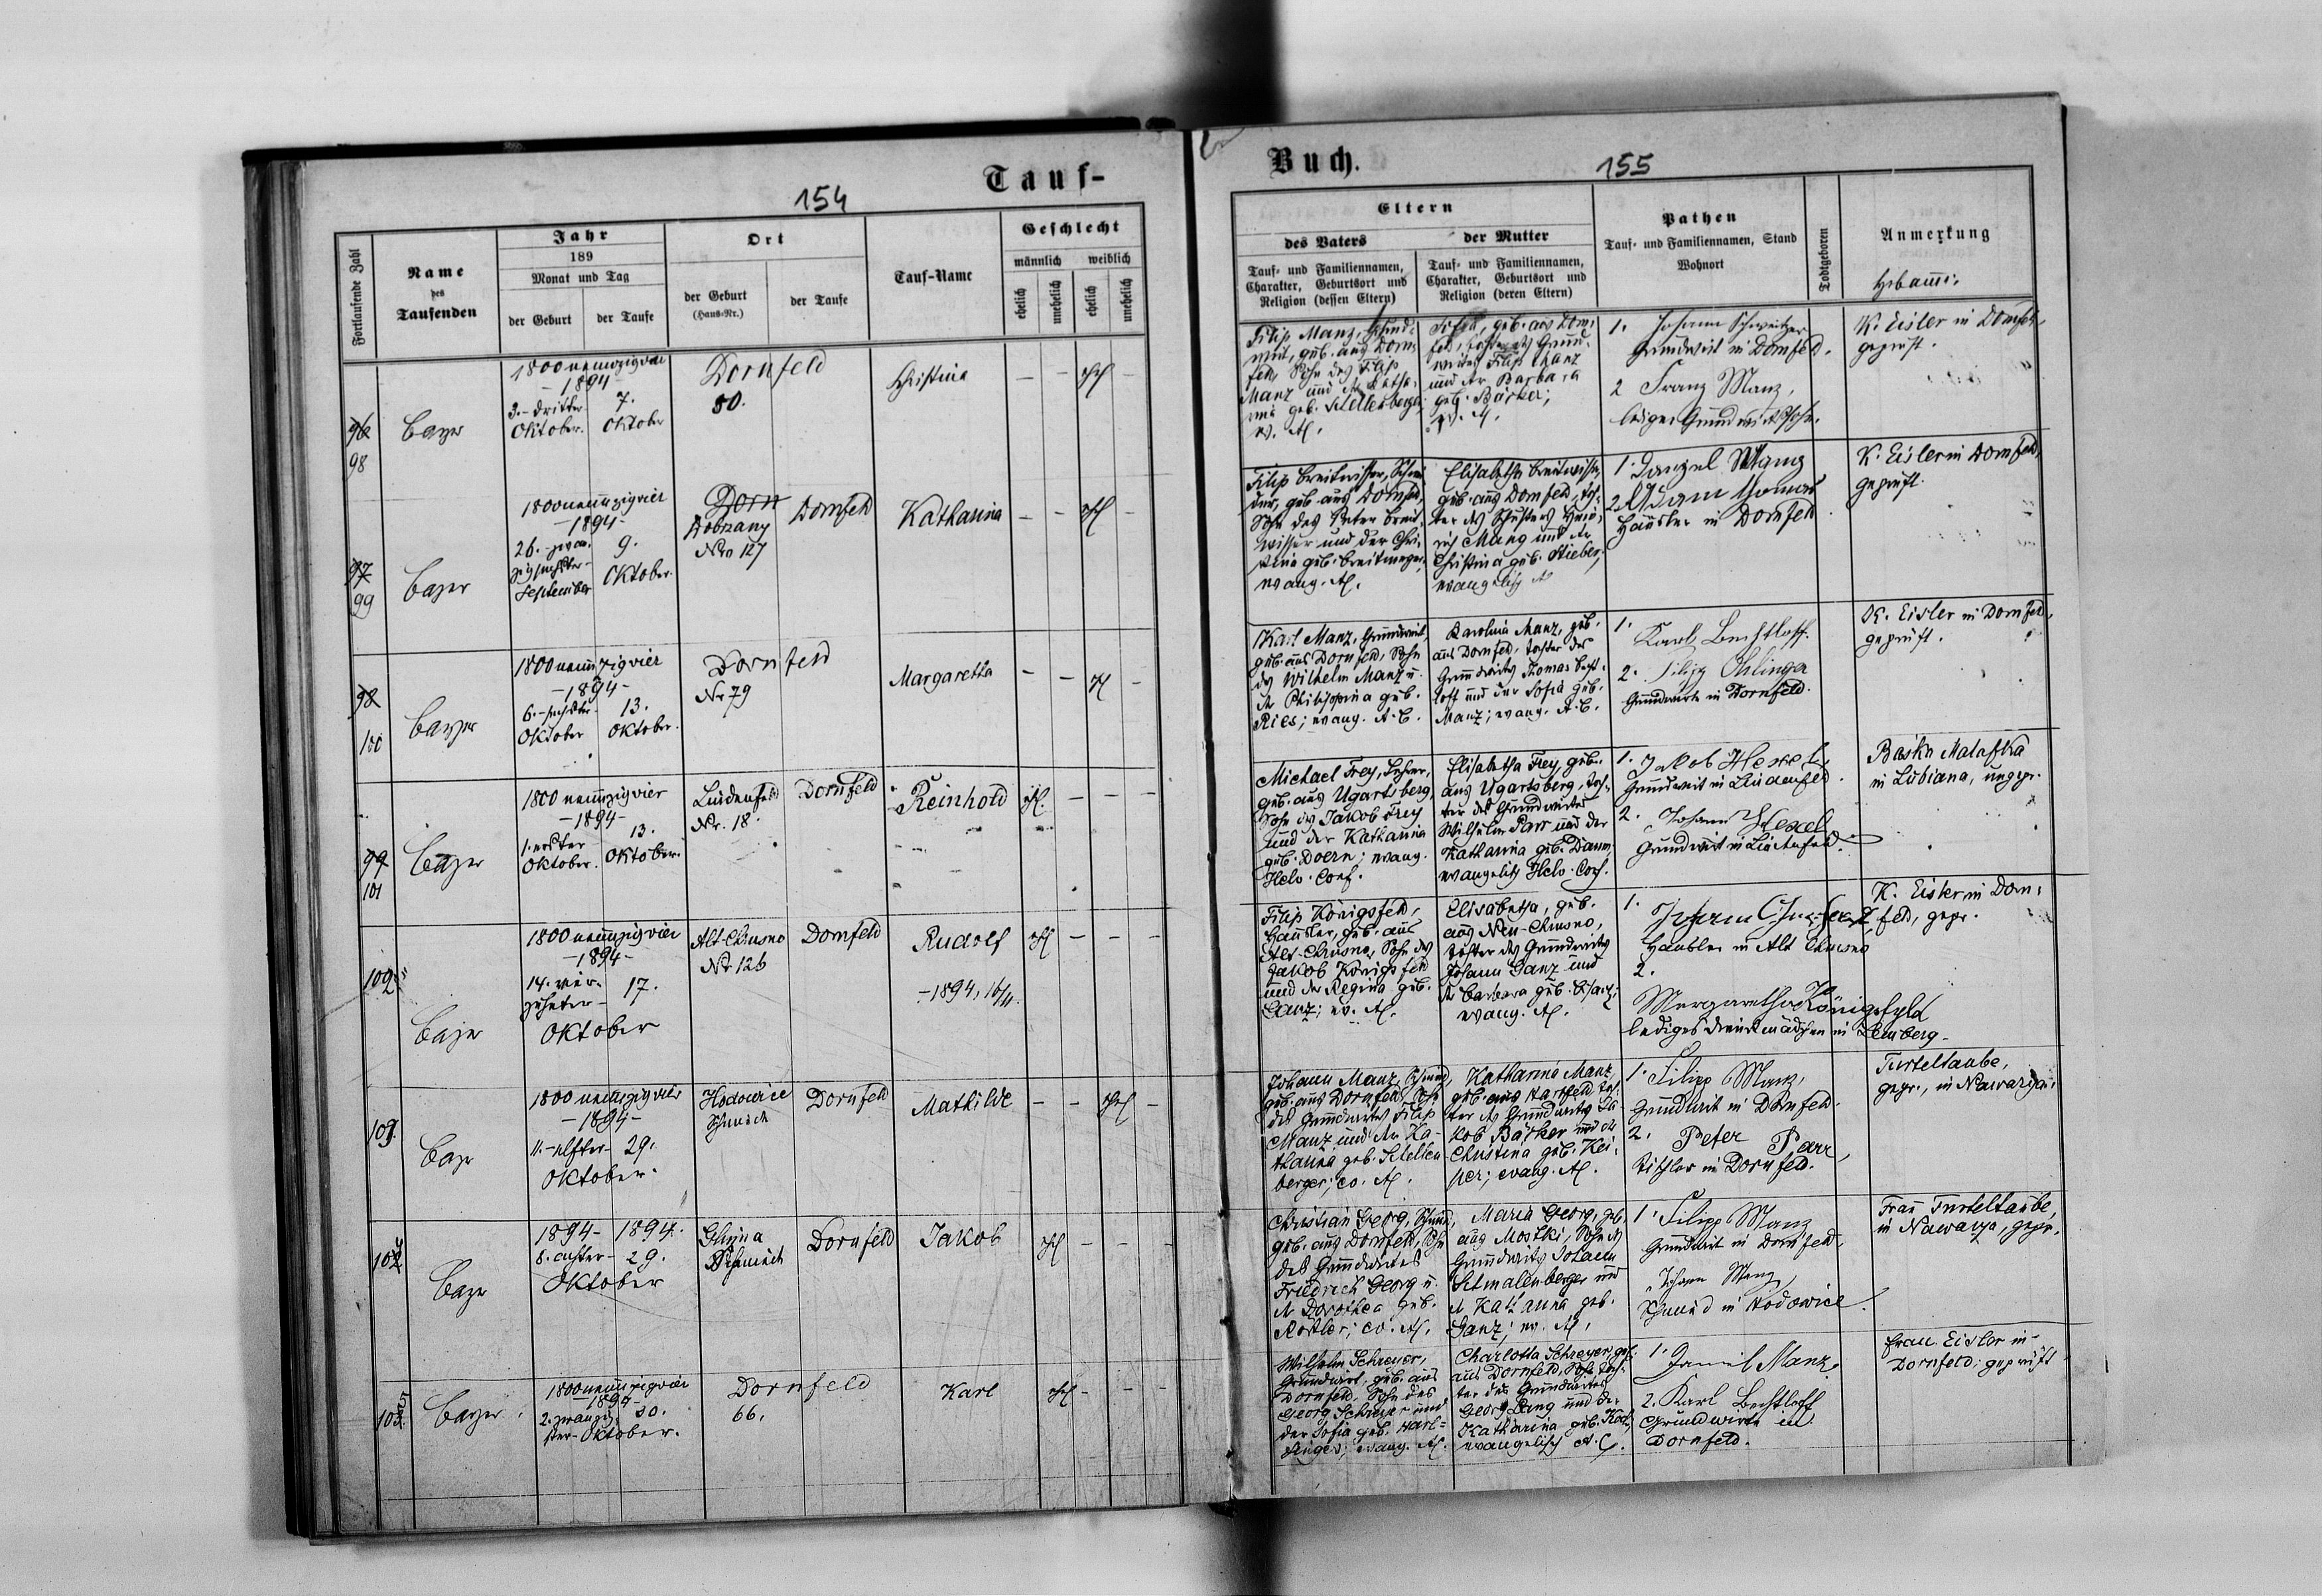 Tauf-
154
Fortlaufende Zahl
Name
des
Taufenden
Jahr
189
Monat und Tag
der Geburt
der Taufe
Ort
der Geburt
(Haus-Nr.)
der Taufe
Tauf-Name
Geschlecht
männlich
weiblich
ehelich
unehelich
ehelich
unehelich
96
98
Bayer
1800 neunzigvier
- 1894 -
3. - dritter - 7.
Oktober. Oktober
Dornfeld
80.
Christina
97
99
Bayer
1800 neunzigvier
- 1894 -
26. - zwan- 9.
zigsechster -
September Oktober.
Dorn
Dobrzany
Nro 127
Dornfeld
Katharina
98
100
Bayer
1800 neunzigvier
- 1894 -
6. - sechster - 13.
Oktober Oktober.
Dornfeld
Nr 79
Margaretha
99
101
Bayer
1800 neunzigvier
- 1894 -
1. erster 13.
Oktober. Oktober.
Lindenfeld
Nr. 18.
Dornfeld
Reinhold
102
Bayer
1800 neunzigvier
- 1894 -
14. vier- 17.
zehnter -
Oktober
Alt-Chrusno
Nr 126
Dornfeld
Rudolf
- 1894, 16/11.
103
Bayer
1800 neunzigvier
- 1894 -
11. - elfter - 29.
Oktober.
Hodowice
Schmiede
Dornfeld
Mathilde
104
Bayer
1894 - 1894.
8. achter - 29.
Oktober
Glinna
Schmiede
Dornfeld
Jakob
105
Bayer
1800 neunzigvier
- 1894 -
2. zwanzig- 30.
ster - Oktober.
Dornfeld
66.
Karl
Buch.
155
Eltern
des Vaters
der Mutter
Tauf- und Familiennamen,
Charakter, Geburtsort und
Religion (dessen Eltern)
Tauf- und Familiennamen,
Charakter, Geburtsort und
Religion (deren Eltern)
Pathen
Tauf- und Familiennamen, Stand
Wohnort
Todtgeboren
Anmerkung
Hebamme:
Filip Manz, Grund-
wirt, geb. aus Dorn-
feld, Sohn des Filip
Manz und der Katha-
rina geb. Schellenberger
ev. A.
Sofia, geb. aus Dorn-
feld, Tochter des Grund-
wirtes Filip Manz
und der Barbara
geb. Bärker;
ev. A.
1. Johann Schweitzer
Grundwirt in Dornfeld.
2 Franz Manz,
lediger Grundwirtssohn.
K. Eisler in Dornfeld,
geprüft.
Filip Breitwieser, Schnei-
der, geb. aus Dornfeld,
Sohn des Peter Breit-
wieser und der Chri-
stina geb. Breitmeyer,
evang. A.
Elisabetha Breitwieser,
geb. aus Dornfeld, Toch-
ter des Schusters Hein-
rich Mang und der
Christina geb. Stieber,
evangelisch A
1. Daniel Manz
2. Adam Thomas
Häusler in Dornfeld
K. Eisler in Dornfeld,
geprüft.
Karl Manz, Grundwirt,
geb. aus Dornfeld, Sohn
des Wilhelm Manz u.
der Philippina geb.
Ries; evang. A. C.
Karolina Manz, geb.
aus Dornfeld, Tochter des
Grundwirtes Thomas Becht-
loff und der Sofia geb.
Manz; evang. A. C.
1.
Karl Bechtloff.
2. Filipp Ohlinger
Grundwirte in Dornfeld.
K. Eisler in Dornfeld,
geprüft.
Michael Frey, Lehrer,
geb. aus Ugartsberg,
Sohn des Jakob Frey
und der Katharina
geb. Doern; evang.
Helv. Conf.
Elisabetha Frey, geb.
aus Ugartsberg, Toch-
ter des Grundwirtes
Wilhelm Parr und der
Katharina geb. Daum
evangelisch Helv. Conf.
1. Jakob Hexel,
Grundwirt in Lindenfeld.
2. Johann Hexel
Grundwirt in Lindenfeld.
Baska Matafka
in Lubiana, ungepr.
Filip Königsfeld,
Häusler, geb. aus
Alt-Chrusno, Sohn des
Jakob Königsfeld
und der Regina geb.
Ganz; ev. A.
Elisabetha, geb.
aus Neu-Chrusno,
Tochter des Grundwirtes
Johann Ganz und
der Barbara geb.
evang. A.
1.
Johann
Häusler in Alt Chrusno
2.
Margaretha Königsfeld
lediges Dienstmädchen in Lemberg.
K. Eisler in Dorn-
feld, gepr.
Johann Manz, Schmied,
geb. aus Dornfeld, Sohn
des Grundwirtes Filip
Manz und der Ka-
tharina geb. Schellen-
berger; ev. A.
Katharina Manz,
geb. aus Hartfeld, Toch-
ter des Grundwirtes Ja-
kob Bärker und der
Christina geb. Kei-
per; evang. A.
1. Filipp Manz,
Grundwirt in Dornfeld.
2. Peter Parr,
Tischler in Dornfeld.
Turteltaube,
gepr., in Nawarya.
Christian Georg, Schmied,
geb. aus Dornfeld, Sohn
des Grundwirtes
Friedrich Georg u.
der Dorothea geb.
Rottler; ev. A.
Maria Georg, geb.
aus Mostki, Sohn des
Grundwirtes Johann
Schmalenberger und
der Katharina geb.
Ganz; ev. A.
1. Filipp Manz
Grundwirt in Dornfeld,
Johann Manz,
Schmied in Hodowice.
Frau Turteltaube,
in Nawarya, gepr.
Wilhelm Schreyer,
Grundwirt, geb. aus
Dornfeld. Sohn des
Georg Schreyer und
der Sofia geb. Harl-
finger; evang. A.
Charlotta Schreyer, geb.
aus Dornfeld, Toch-
ter des Grundwirtes
Georg Lang und der
Katharina geb.
evangelisch A. C.
1. Daniel Manz.
2. Karl Bechtloff
Grundwirte in
Dornfeld.
Frau Eisler in
Dornfeld; geprüft